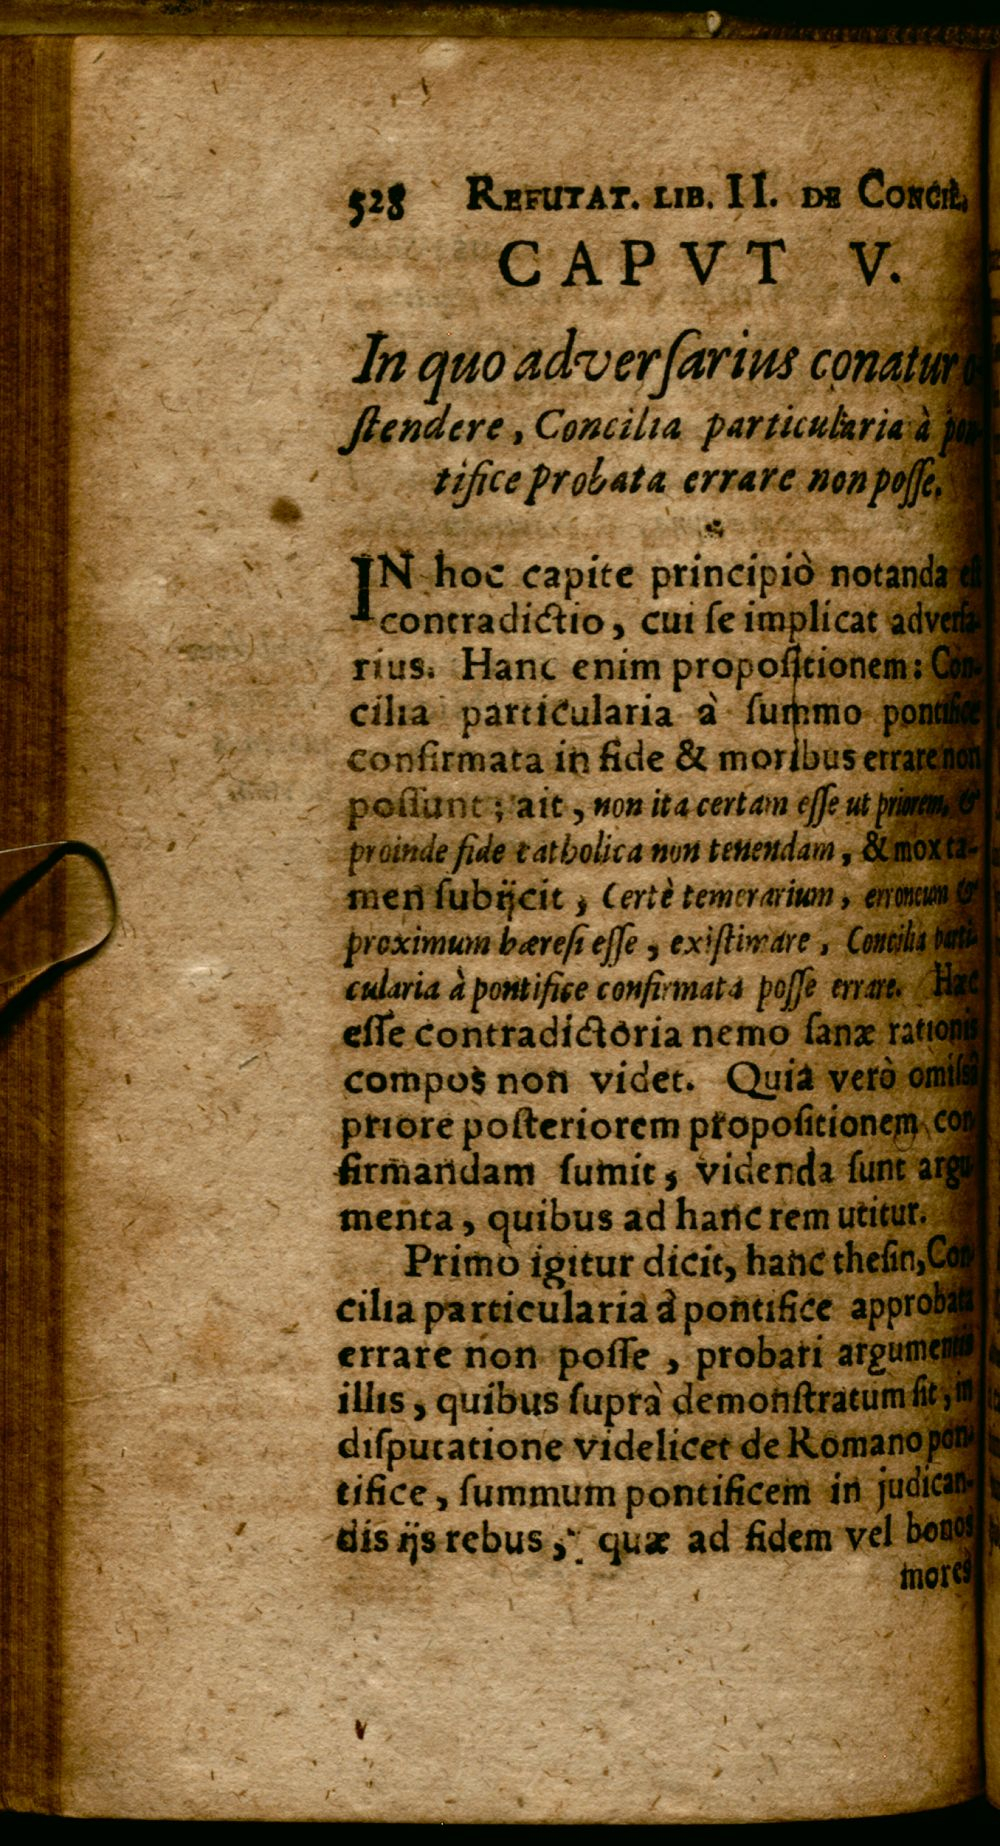 528 REFUTAT. LIB. II. DE CONCIL.
CAPVT V.
In quo adverſarius conatur o-
ſtendere, Concilia particularia à pon-
tifice probata errare non poſſe.
IN hoc capite principiò notanda eſt
contradictio, cui ſe implicat adverſa-
rius. Hanc enim propoſitionem: Con-
cilia particularia à ſummo pontifice
confirmata in fide & moribus errare non
poſſunt; ait, non ita certam eſſe ut priorem, &
proinde fide catholica non tenendam, & mox ta-
men ſubijcit, Certè temerarium, erroneum &
proximum hæreſi eſſe, exiſtimare, Concilia parti-
cularia à pontifice confirmata poſſe errare. Hæc
eſſe contradictoria nemo ſanæ rationis
compos non videt. Quia verò omiſsâ
priore poſteriorem propoſitionem con-
firmandam ſumit, videnda ſunt argu-
menta, quibus ad hanc rem utitur.
Primò igitur dicit, hanc theſin, Con-
cilia particularia à pontifice approbata
errare non poſſe, probari argumentis
illis, quibus ſuprà demonſtratum ſit, in
diſputatione videlicet de Romano pon-
tifice, ſummum pontificem in judican-
dis ijs rebus, quæ ad fidem vel bonos
mores